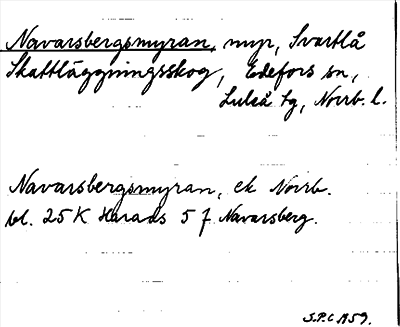 Navarsbergsmyran, myr, Svartlå
Skattläggningsskog, Edefors sn,
Luleå tg, Norrb. l.
Navarsbergsmyran, ek Norrb.
bl. 25 K Harads 5 f Navarsberg.